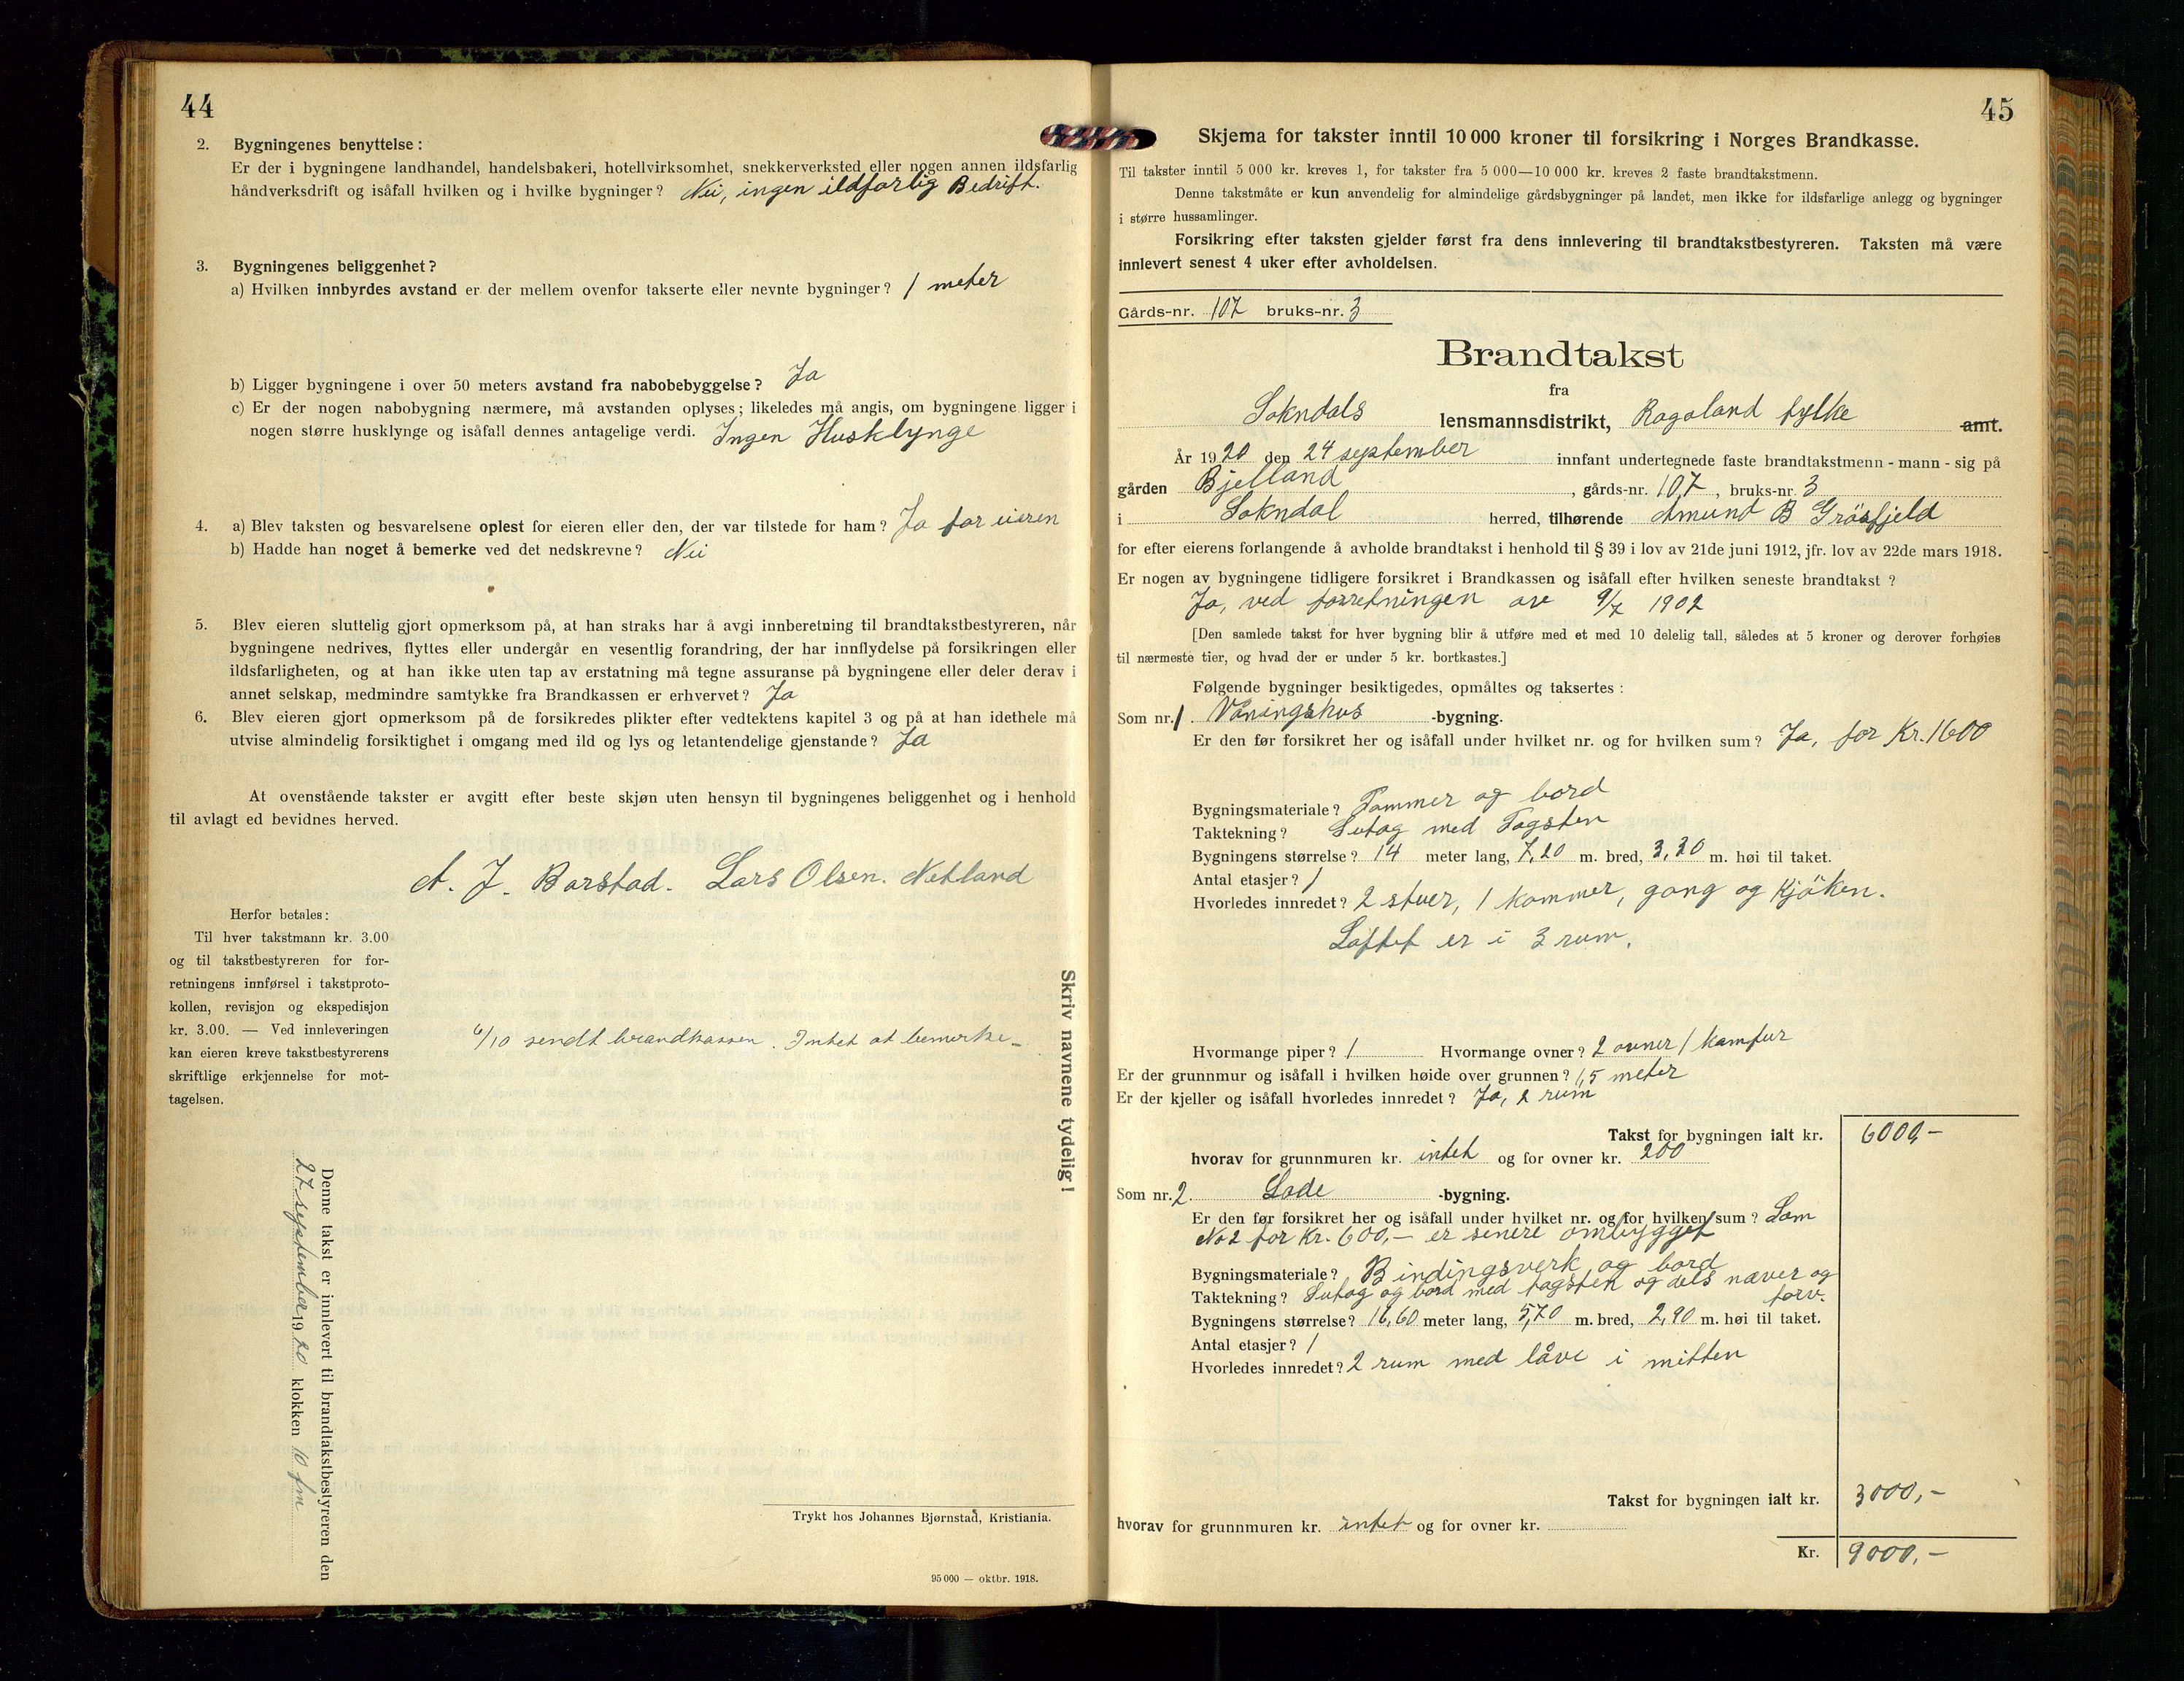 44
2. Bygningenes benyttelse:
Er der i bygningene landhandel, handelsbakeri, hotellvirksomhet, snekkerverksted eller nogen annen ildsfarlig
håndverksdrift og isåfall hvilken og i hvilke bygninger? Nei, ingen ildfarlig Bedrift.
3. Bygningenes beliggenhet?
a) Hvilken innbyrdes avstand er der mellem ovenfor takserte eller nevnte bygninger? 1 meter
b) Ligger bygningene i over 50 meters avstand fra nabobebyggelse? Ja
c) Er der nogen nabobygning nærmere, må avstanden oplyses; likeledes må angis, om bygningene ligger i
nogen større husklynge og isåfall dennes antagelige verdi. Ingen Husklynge
4. a) Blev taksten og besvarelsene oplest for eieren eller den, der var tilstede for ham? Ja for eieren
b) Hadde han noget å bemerke ved det nedskrevne? Nei
5. Blev eieren sluttelig gjort opmerksom på, at han straks har å avgi innberetning til brandtakstbestyreren, når
bygningene nedrives, flyttes eller undergår en vesentlig forandring, der har innflydelse på forsikringen eller
ildsfarligheten, og at han ikke uten tap av erstatning må tegne assuranse på bygningene eller deler derav i
annet selskap, medmindre samtykke fra Brandkassen er erhvervet? Ja
6. Blev eieren gjort opmerksom på de forsikredes plikter efter vedtektens kapitel 3 og på at han idethele må
utvise almindelig forsiktighet i omgang med ild og lys og letantendelige gjenstande? Ja
At ovenstående takster er avgitt efter beste skjøn uten hensyn til bygningenes beliggenhet og i henhold
til avlagt ed bevidnes herved.
A. J. Barstad. Lars Olsen. Netland
Herfor betales:
Til hver takstmann kr. 3.00
og til takstbestyreren for for-
retningens innførsel i takstproto-
kollen, revisjon og ekspedisjon
kr. 3.00. — Ved innleveringen
kan eieren kreve takstbestyrerens
skriftlige erkjennelse for mot-
tagelsen.
6/10 sendt brandkassen. Intet at bemerke_
Skriv navnene tydelig!
Denne takst er innlevert til brandtakstbestyreren den
27 september 1920 klokken 10 fm
Trykt hos Johannes Bjørnstad, Kristiania.
95 000 — oktbr. 1918.
45
Skjema for takster inntil 10 000 kroner til forsikring i Norges Brandkasse.
Til takster inntil 5 000 kr. kreves 1, for takster fra 5 000—10 000 kr. kreves 2 faste brandtakstmenn.
Denne takstmåte er kun anvendelig for almindelige gårdsbygninger på landet, men ikke for ildsfarlige anlegg og bygninger
i større hussamlinger.
Forsikring efter taksten gjelder først fra dens innlevering til brandtakstbestyreren. Taksten må være
innlevert senest 4 uker efter avholdelsen.
Gårds-nr. 107 bruks-nr. 3
Brandtakst
fra
Sokndals lensmannsdistrikt, Rogaland fylke amt.
År 1920 den 24 september innfant undertegnede faste brandtakstmenn - mann - sig på
gården Bjelland, gårds-nr. 107, bruks-nr. 3
i Sokndal herred, tilhørende Amund B Gråsfjeld
for efter eierens forlangende å avholde brandtakst i henhold til § 39 i lov av 21de juni 1912, jfr. lov av 22de mars 1918.
Er nogen av bygningene tidligere forsikret i Brandkassen og isåfall efter hvilken seneste brandtakst?
Ja, ved forretningen av 9/7 1902
[Den samlede takst for hver bygning blir å utføre med et med 10 delelig tall, således at 5 kroner og derover forhøies
til nærmeste tier, og hvad der er under 5 kr. bortkastes.]
Følgende bygninger besiktigedes, opmåltes og taksertes:
Som nr. 1. Våningshus -bygning.
Er den før forsikret her og isåfall under hvilket nr. og for hvilken sum? Ja, for Kr. 1600
Bygningsmateriale? Tømmer og bord
Taktekning? Sutag med Tagsten
Bygningens størrelse? 14 meter lang, 7,20 m. bred, 3,30 m. høi til taket.
Antal etasjer? 1
Hvorledes innredet? 2 stuer, 1 kammer, gang og Kjöken.
Loftet er i 3 rum.
Hvormange piper? 1 Hvormange ovner? 2 ovner 1 kamfur
Er der grunnmur og isåfall i hvilken høide over grunnen? 1,5 meter
Er der kjeller og isåfall hvorledes innredet? Ja, 2 rum
Takst for bygningen ialt kr. 6000,-
hvorav for grunnmuren kr. intet og for ovner kr. 200
Som nr. 2. Løde -bygning.
Er den før forsikret her og isåfall under hvilket nr. og for hvilken sum? Som
No 2 for Kr. 600,- er senere ombygget
Bygningsmateriale? Bindingsverk og bord
Taktekning? Sutag og bord med tagsten og dels næver og
torv.
Bygningens størrelse? 16,60 meter lang, 5,70 m. bred, 2,90 m. høi til taket.
Antal etasjer? 1
Hvorledes innredet? 2 rum med låve i mitten
Takst for bygningen ialt kr. 3000,-
hvorav for grunnmuren kr. intet og for ovner kr.
Kr. 9000,-